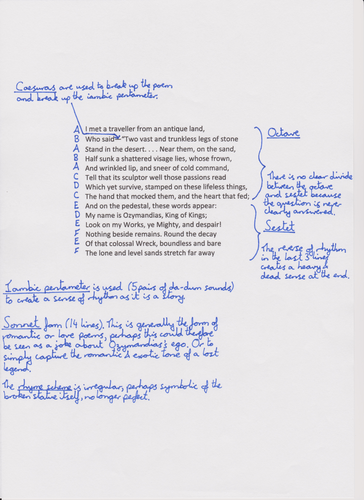 Caesuras are used to break up the poem
and break up the iambic pentameter.
A I met a traveller from an antique land,
B Who said "Two vast and trunkless legs of stone
A Stand in the desert. . . . Near them, on the sand,
B Half sunk a shattered visage lies, whose frown,
A And wrinkled lip, and sneer of cold command,
C Tell that its sculptor well those passions read
D Which yet survive, stamped on these lifeless things,
C The hand that mocked them, and the heart that fed;
E And on the pedestal, these words appear:
D My name is Ozymandias, King of Kings;
E Look on my Works, ye Mighty, and despair!
F Nothing beside remains. Round the decay
E Of that colossal Wreck, boundless and bare
F The lone and level sands stretch far away
Octave
There is no clear divide
between the octave
and sestet because
the question is never
clearly answered.
Sestet
The reverse of rhythm
in the last 3 lines
creates a heavy
dead sense at the end.
Iambic pentameter is used (5 pairs of da-dum sounds)
to create a sense of rhythm as it is a story.
Sonnet form (14 lines). This is generally the form of
romantic or love poems, perhaps this could therefore
be seen as a joke about Ozymandias's ego. Or to
simply capture the romantic & exotic tone of a lost
legend.
The rhyme scheme is irregular, perhaps symbolic of the
broken statue itself, no longer perfect.